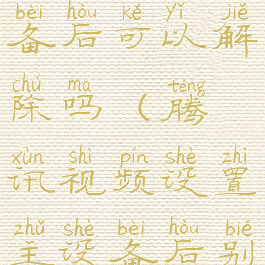 bèi hòu kě yǐ jiě
备后可以解
chú ma téng
除吗（腾
xùn shì pín shè zhì
讯视频设置
zhǔ shè bèi hòu bié
主设备后别